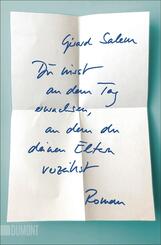 Gérard Salem
Du wirst
an dem Tag
erwachsen,
an dem du
deinen Eltern
verzeihst
Roman
DUMONT